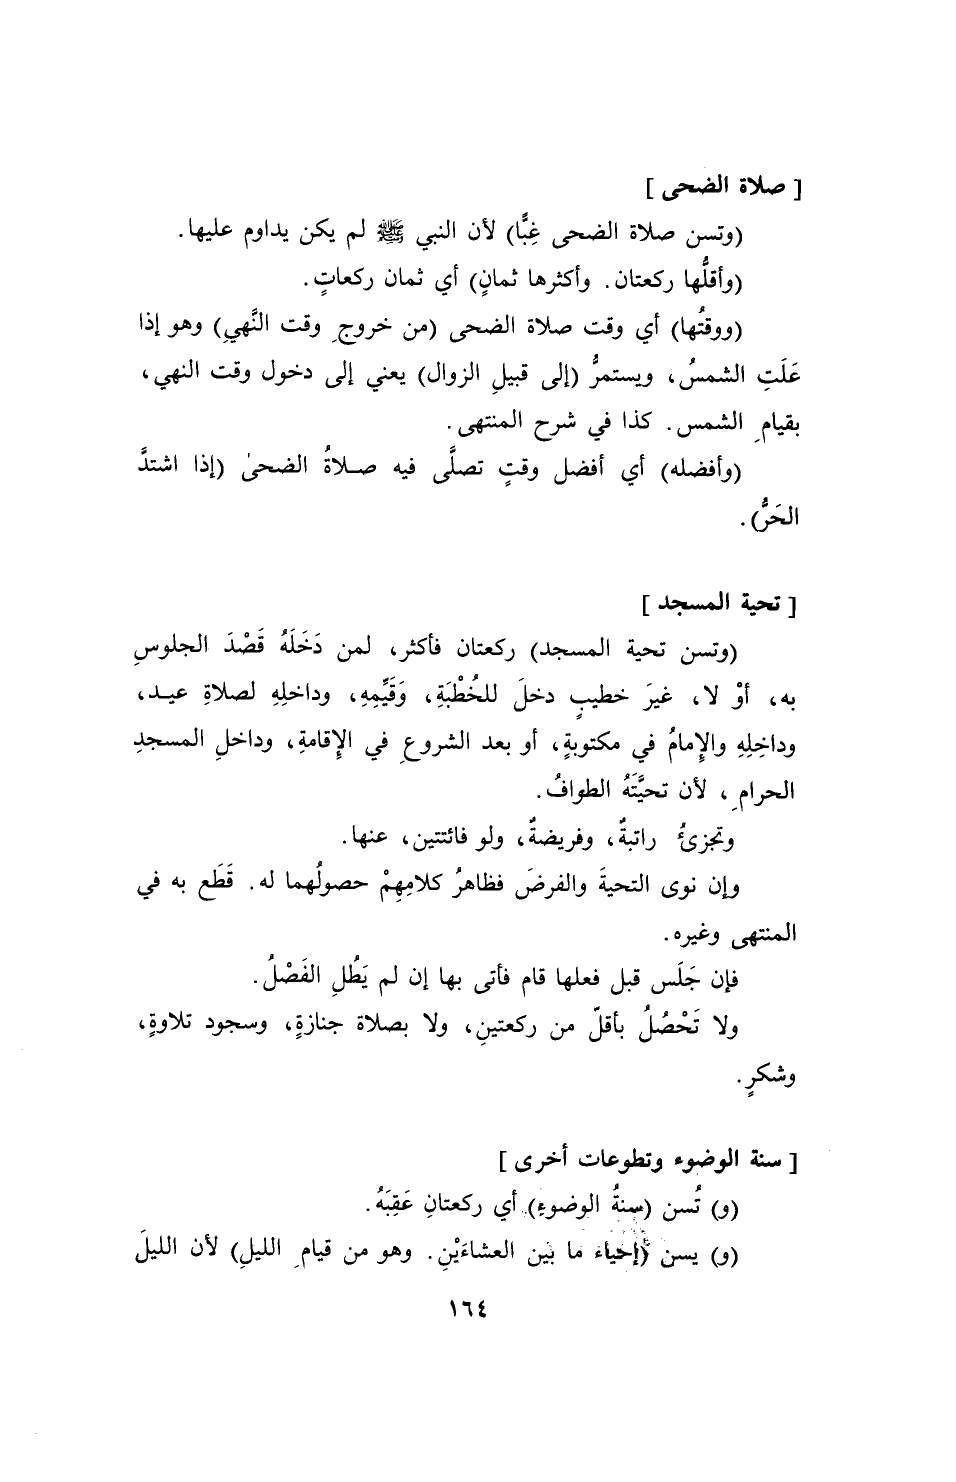 [ صلاة الضحى ]
(وتسن صلاة الضحى غِبًّا) لأن النبي ﷺ لم يكن يداوم عليها.
(وأقلُّها ركعتان. وأكثرها ثمانٍ) أي ثمان ركعاتٍ.
(ووقتُها) أي وقت صلاة الضحى (من خروجِ وقت النَّهيِ) وهو إذا
عَلَتِ الشمسُ، ويستمرُّ (إلى قبيلِ الزوال) يعني إلى دخول وقت النهي،
بقيامِ الشمس. كذا في شرح المنتهى.
(وأفضله) أي أفضل وقتٍ تصلَّى فيه صلاةُ الضحىٰ (إذا اشتدَّ
الحَرُّ).
[ تحية المسجد ]
(وتسن تحية المسجد) ركعتان فأكثر، لمن دَخَلَهُ قَصْدَ الجلوسِ
به، أوْ لا، غيرَ خطيبٍ دخلَ للخُطْبَةِ، وَقَيِّمِهِ، وداخلِهِ لصلاةِ عيد،
وداخِلِهِ والإِمامُ في مكتوبةٍ، أو بعد الشروعِ في الإِقامةِ، وداخلِ المسجدِ
الحرامِ، لأن تحيَّتَهُ الطوافُ.
وتجزىُٔ راتبةٌ، وفريضةٌ، ولو فائتتين، عنها.
وإن نوى التحيةَ والفرضَ فظاهرُ كلامِهِمْ حصولُهما له. قَطَع به في
المنتهى وغيره.
فإن جَلَس قبل فعلها قام فأتى بها إن لم يَطُلِ الفَصْلُ.
ولا تَحْصُلُ بأقلّ من ركعتينِ، ولا بصلاة جنازةٍ، وسجود تلاوةٍ،
وشكرٍ.
[ سنة الوضوء وتطوعات أخرى ]
(و) تُسن (سنةُ الوضوءِ) أي ركعتانِ عَقِبَهُ.
(و) يسن (إحياء ما بين العشاءَيْنِ. وهو من قيامِ الليلِ) لأن الليلَ
١٦٤